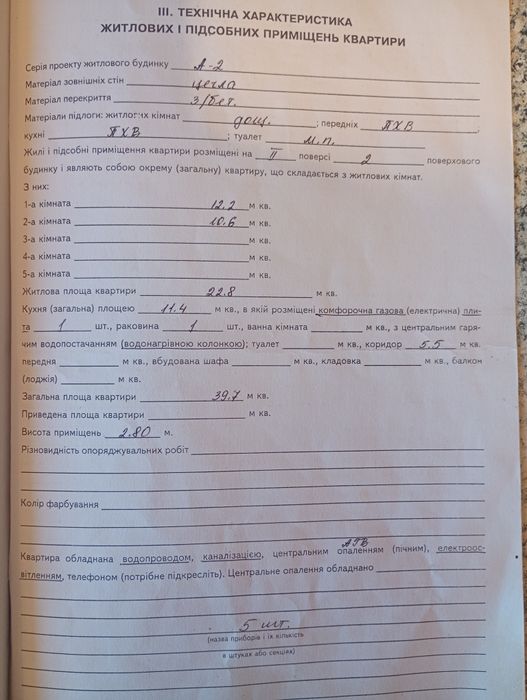 III. ТЕХНІЧНА ХАРАКТЕРИСТИКА
ЖИТЛОВИХ І ПІДСОБНИХ ПРИМІЩЕНЬ КВАРТИРИ
Серія проекту житлового будинку А-2
Матеріал зовнішніх стін цегла
Матеріал перекриття з/бет.
Матеріали підлоги: житлових кімнат дощ. ; передніх ПХВ ;
кухні ПХВ ; туалет м.п.
Жилі і підсобні приміщення квартири розміщені на II поверсі 2 поверхового
будинку і являють собою окрему (загальну) квартиру, що складається з житлових кімнат.
З них:
1-а кімната 12.2 м кв.
2-а кімната 10.6 м кв.
3-а кімната м кв.
4-а кімната м кв.
5-а кімната м кв.
Житлова площа квартири 22.8 м кв.
Кухня (загальна) площею 11.4 м кв., в якій розміщені комфорочна газова (електрична) пли-
та 1 шт., раковина 1 шт., ванна кімната м кв., з центральним гаря-
чим водопостачанням (водонагрівною колонкою); туалет м кв., коридор 5.5 м кв.
передня м кв., вбудована шафа м кв., кладовка м кв., балкон
(лоджія) м кв.
Загальна площа квартири 39.7 м кв.
Приведена площа квартири м кв.
Висота приміщень 2.80 м.
Різновидність опоряджувальних робіт
Колір фарбування
АГВ
Квартира обладнана водопроводом, каналізацією, центральним опаленням (пічним), електроос-
вітленням, телефоном (потрібне підкресліть). Центральне опалення обладнано
5 шт.
(назва приборів і їх кількість
в штуках або секціях)